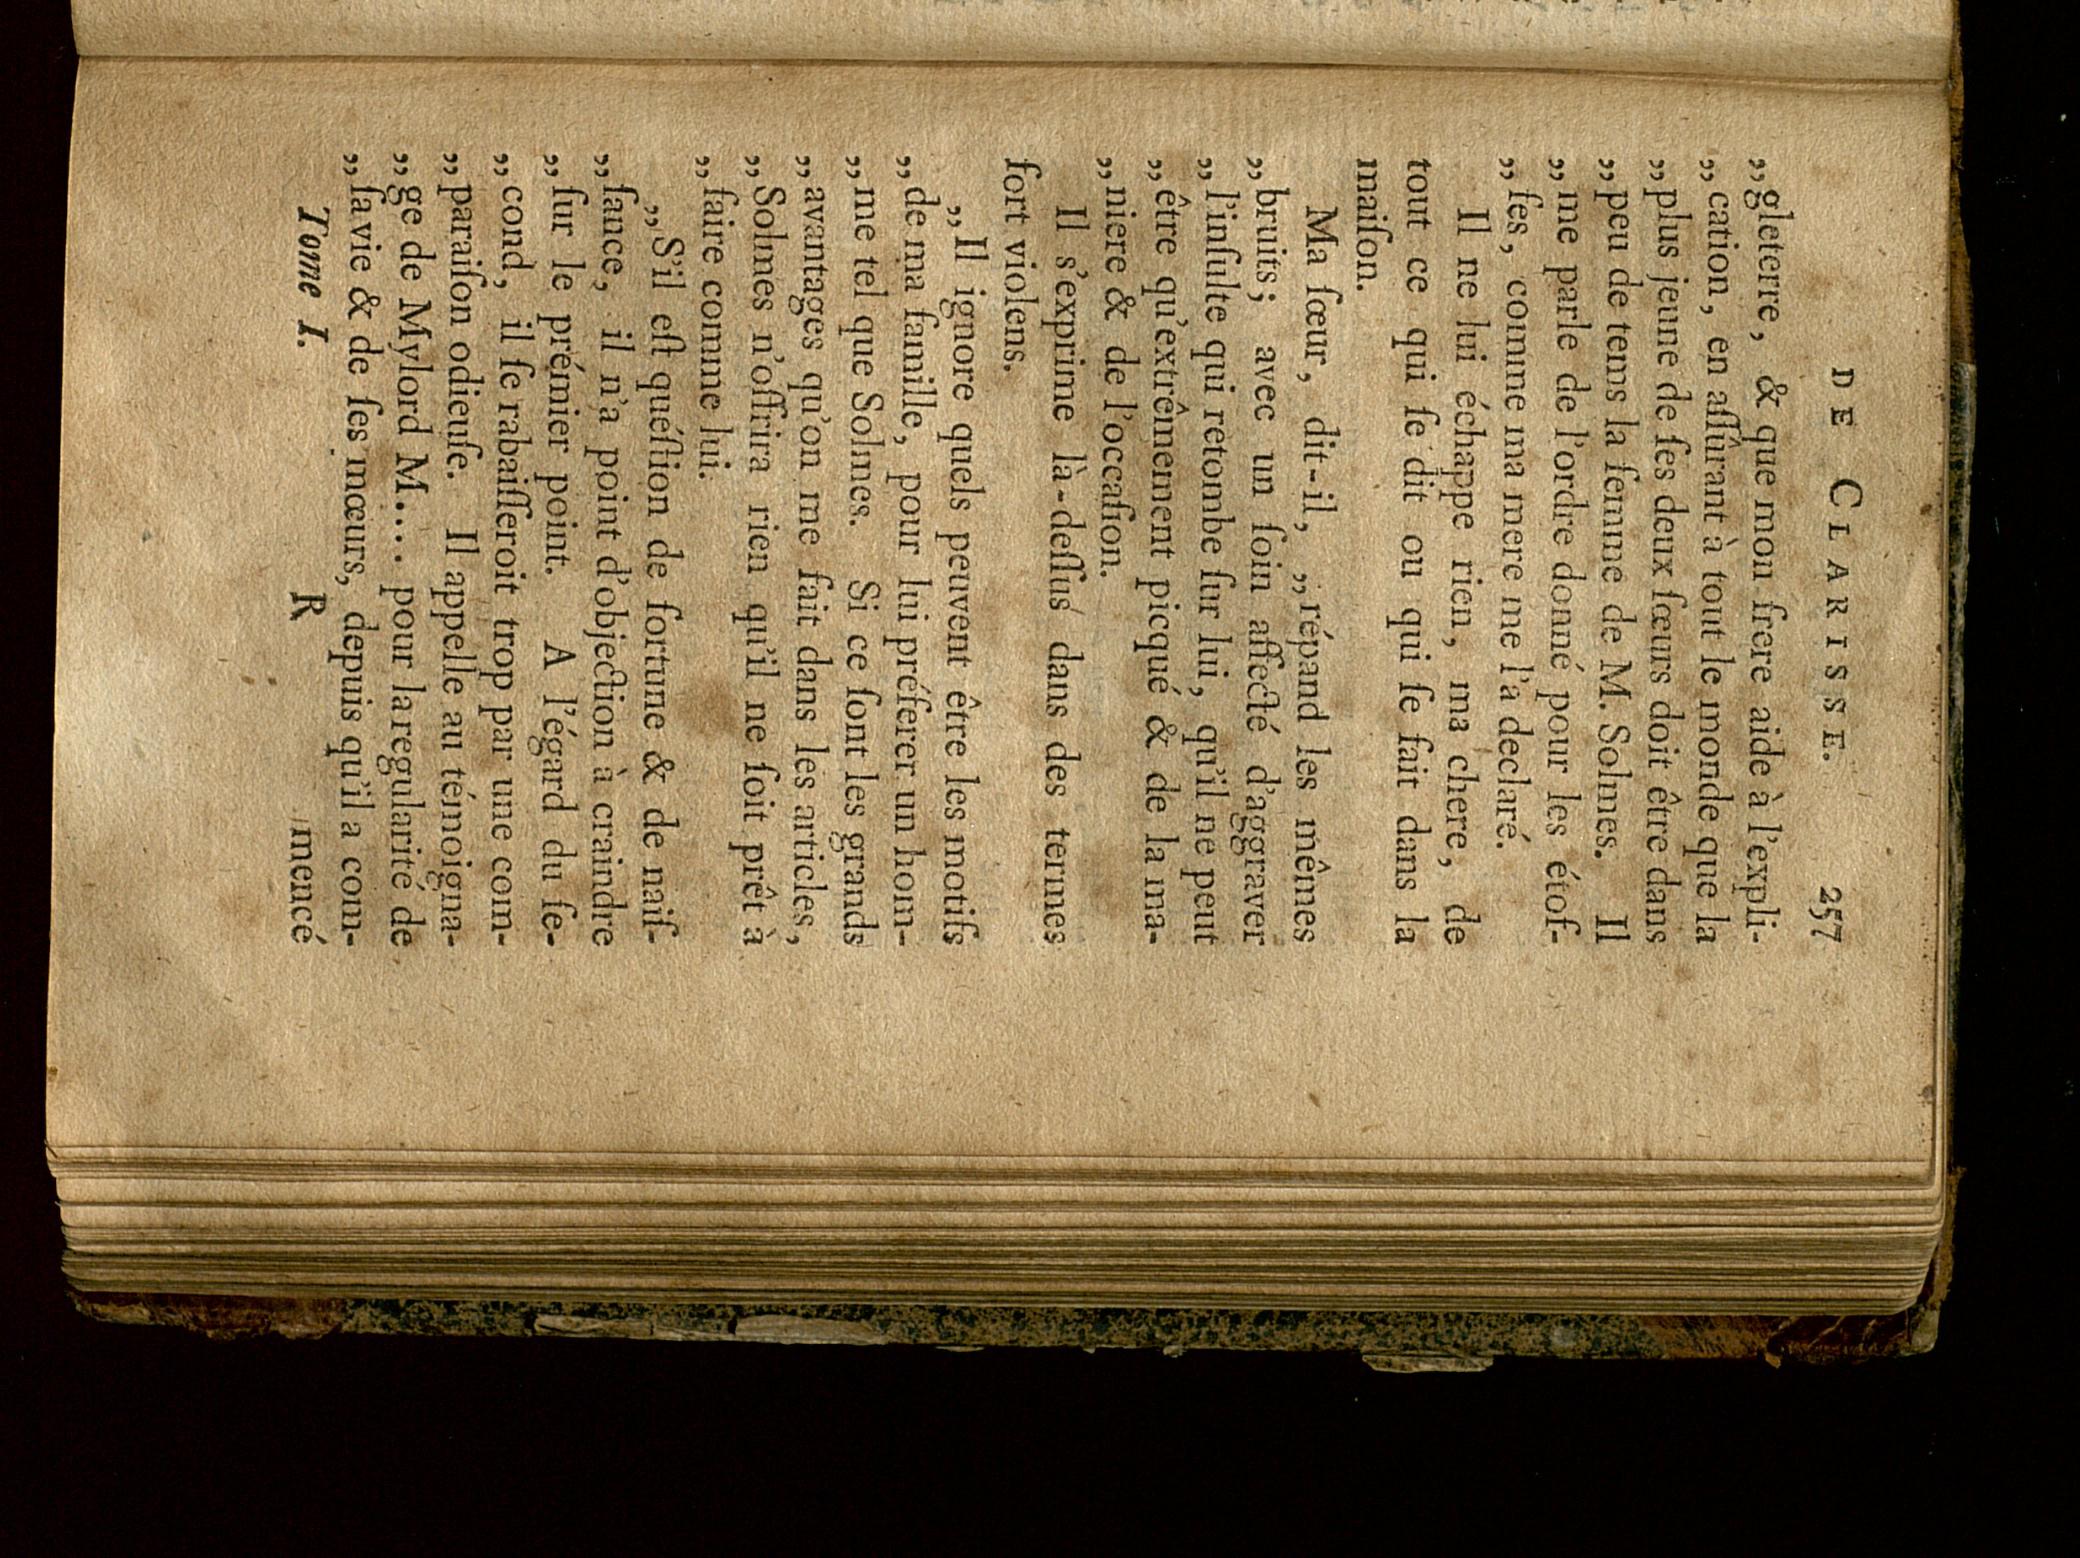 DE CLARISSE. 257
„gleterre, & que mon frere aide à l'expli-
„cation, en aſſûrant à tout le monde que la
„plus jeune de ſes deux ſœurs doit être dans
„peu de tems la femme de M. Solmes. Il
„me parle de l'ordre donné pour les étof-
„fes, comme ma mere me l'a declaré.
Il ne lui échappe rien, ma chere, de
tout ce qui ſe dit ou qui ſe fait dans la
maiſon.
Ma ſœur, dit-il, „répand les mêmes
„bruits; avec un ſoin affecté d'aggraver
„l'inſulte qui retombe ſur lui, qu'il ne peut
„être qu'extrêmement picqué & de la ma-
„niere & de l'occaſion.
Il s'exprime là-deſſus dans des termes
fort violens.
„Il ignore quels peuvent être les motifs
„de ma famille, pour lui préferer un hom-
„me tel que Solmes. Si ce ſont les grands
„avantages qu'on me fait dans les articles,
„Solmes n'offrira rien qu'il ne ſoit prêt à
„faire comme lui.
„S'il eſt quéſtion de fortune & de naiſ-
„ſance, il n'a point d'objection à craindre
„ſur le prémier point. A l'égard du ſe-
„cond, il ſe rabaiſſeroit trop par une com-
„paraiſon odieuſe. Il appelle au témoigna-
„ge de Mylord M.... pour la regularité de
„ſa vie & de ſes mœurs, depuis qu'il a com-
Tome I. R mencé